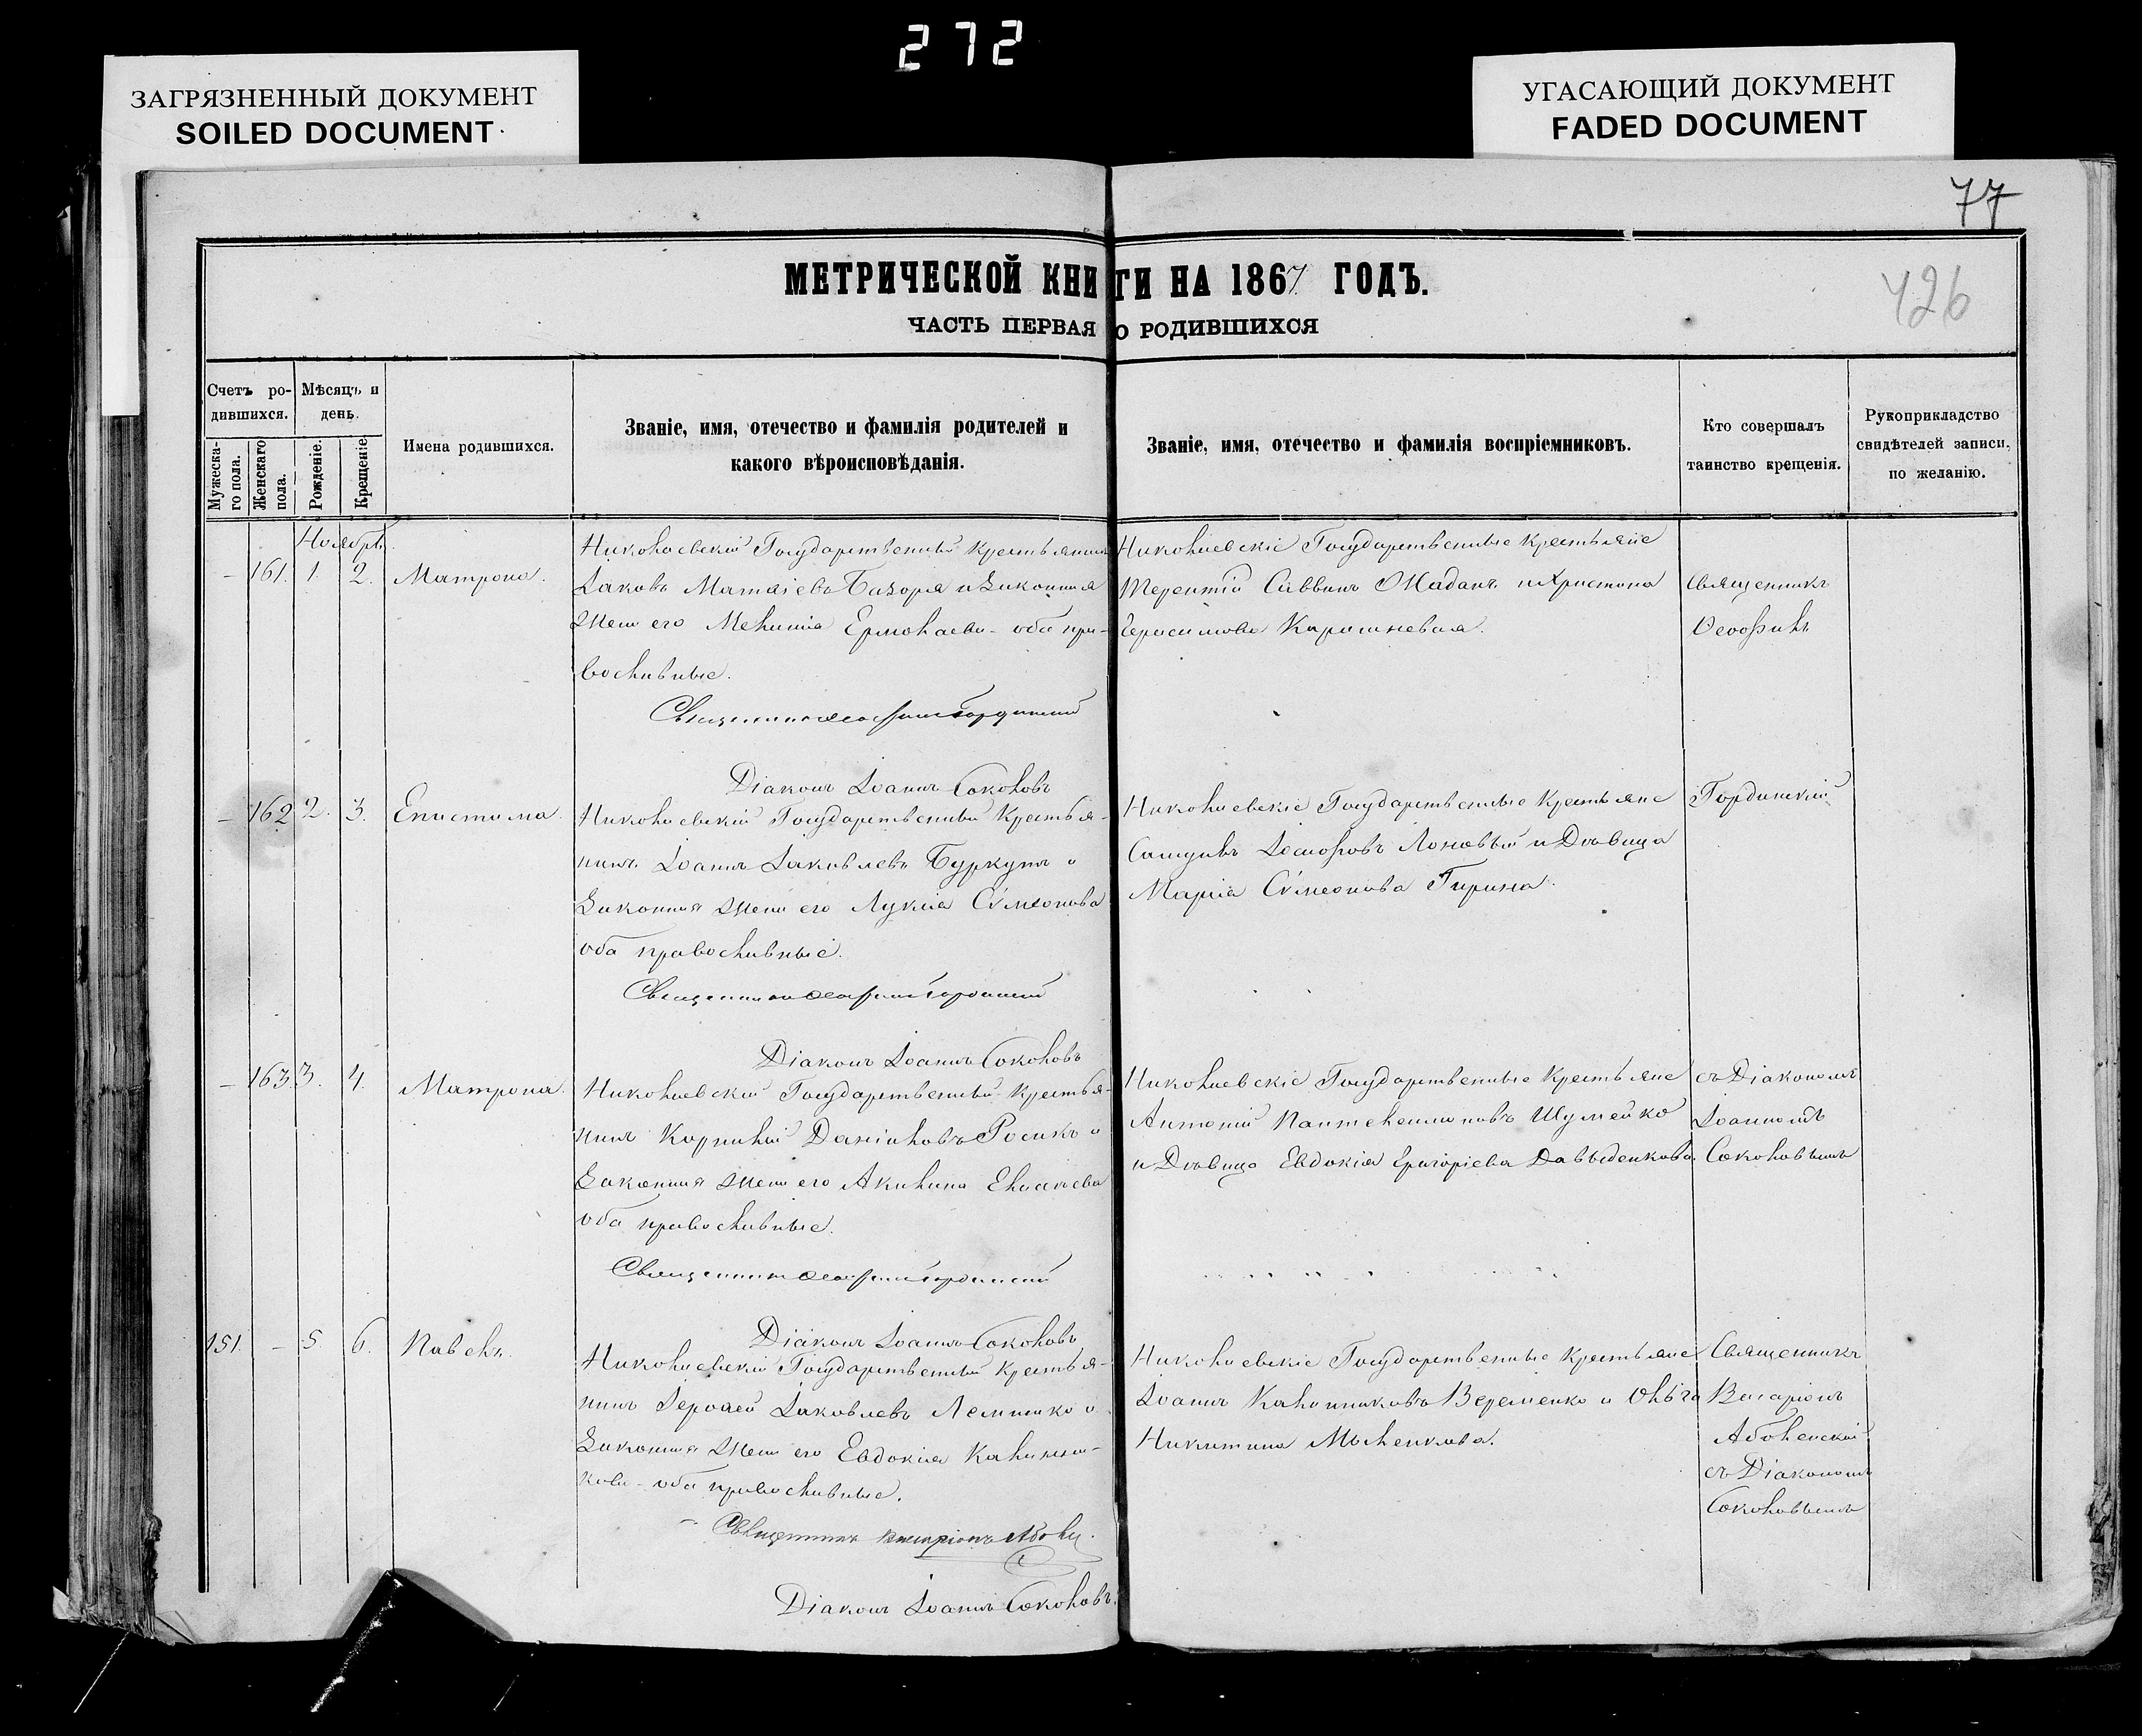 272
ЗАГРЯЗНЕННЫЙ ДОКУМЕНТ
SOILED DOCUMENT
УГАСАЮЩИЙ ДОКУМЕНТ
FADED DOCUMENT
77
426
МЕТРИЧЕСКОЙ КНИГИ НА 1867 ГОДЪ.
ЧАСТЬ ПЕРВАЯ О РОДИВШИХСЯ
Счетъ ро-
дившихся.
Мужеска-
го пола.
Женскаго
пола.
Мѣсяцъ и
день.
Рожденіе.
Крещеніе
Имена родившихся.
Званіе, имя, отечество и фамилія родителей и
какого вѣроисповѣданія.
Званіе, имя, отечество и фамилія воспріемниковъ.
Кто совершалъ
таинство крещенія.
Рукоприкладство
свидѣтелей записи,
по желанію.
Ноябрь.
– 161. 1. 2. Матрона.
Николаевскій Государственный Крестьянинъ
Іаковъ Матѳіевъ и законная
жена его Ермолаева - оба пра-
вославные.
Діаконъ Іоаннъ Соколовъ
Николаевскіе Государственные Крестьяне
Терентій Саввинъ Жадань и Христина
Герасимова
Священникъ
Ѳеофилъ
– 162 2. 3. Епистима.
Николаевскій Государственный Крестья-
нинъ Іоаннъ Іаковлевъ Буркутъ и
законная жена его Лукія Сѵмеонова
оба православные.
Діаконъ Іоаннъ Соколовъ
Николаевскіе Государственные Крестьяне
Іосифовъ и Дѣвица
Марія Сѵмеонова
Гординскій
– 163. 3. 4. Матрона.
Николаевскій Государственный Крестья-
нинъ Корнилій Даніиловъ и
законная жена его Акилина
оба православные.
Діаконъ Іоаннъ Соколовъ
Николаевскіе Государственные Крестьяне
Антоній Пантелеимоновъ Шумейко
и Дѣвица Евдокія Григоріева Давыденкова.
съ Діакономъ
Іоанномъ
Соколовымъ
151. – 5. 6. Павелъ.
Николаевскій Государственный Крестья-
нинъ Іаковлевъ и
законная жена его Евдокія Каллини-
кова - оба православные.
Священникъ Висаріонъ
Діаконъ Іоаннъ Соколовъ.
Николаевскіе Государственные Крестьяне
Іоаннъ Каллиниковъ Веременко и Ольга
Никитина
Священникъ
Висаріонъ
съ Діакономъ
Соколовымъ